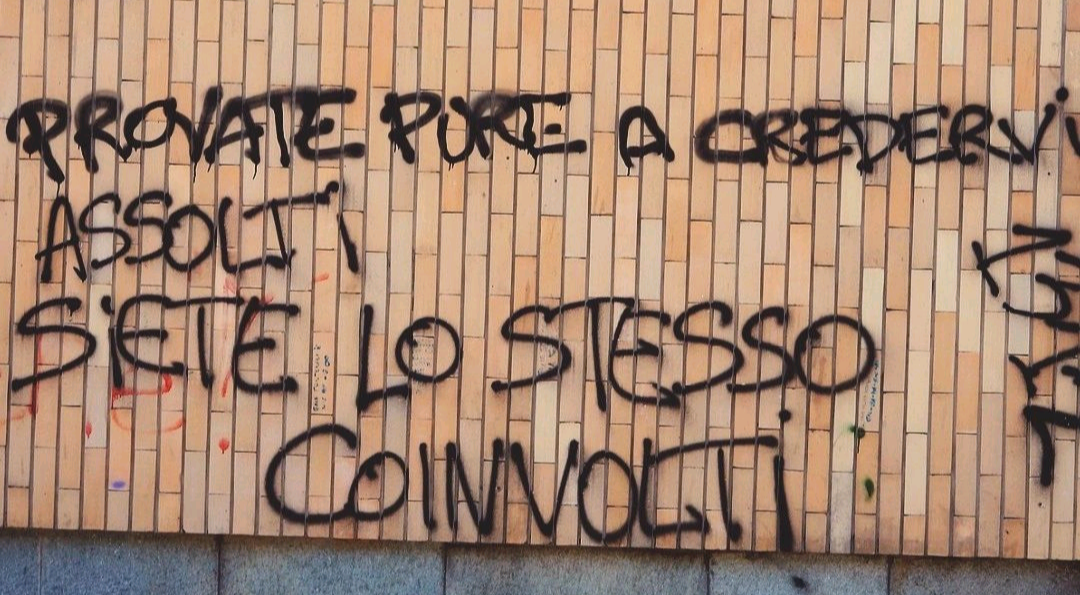 PROVATE PURE A CREDERVi
ASSOLTi
SiETE LO STESSO
COINVOLTi